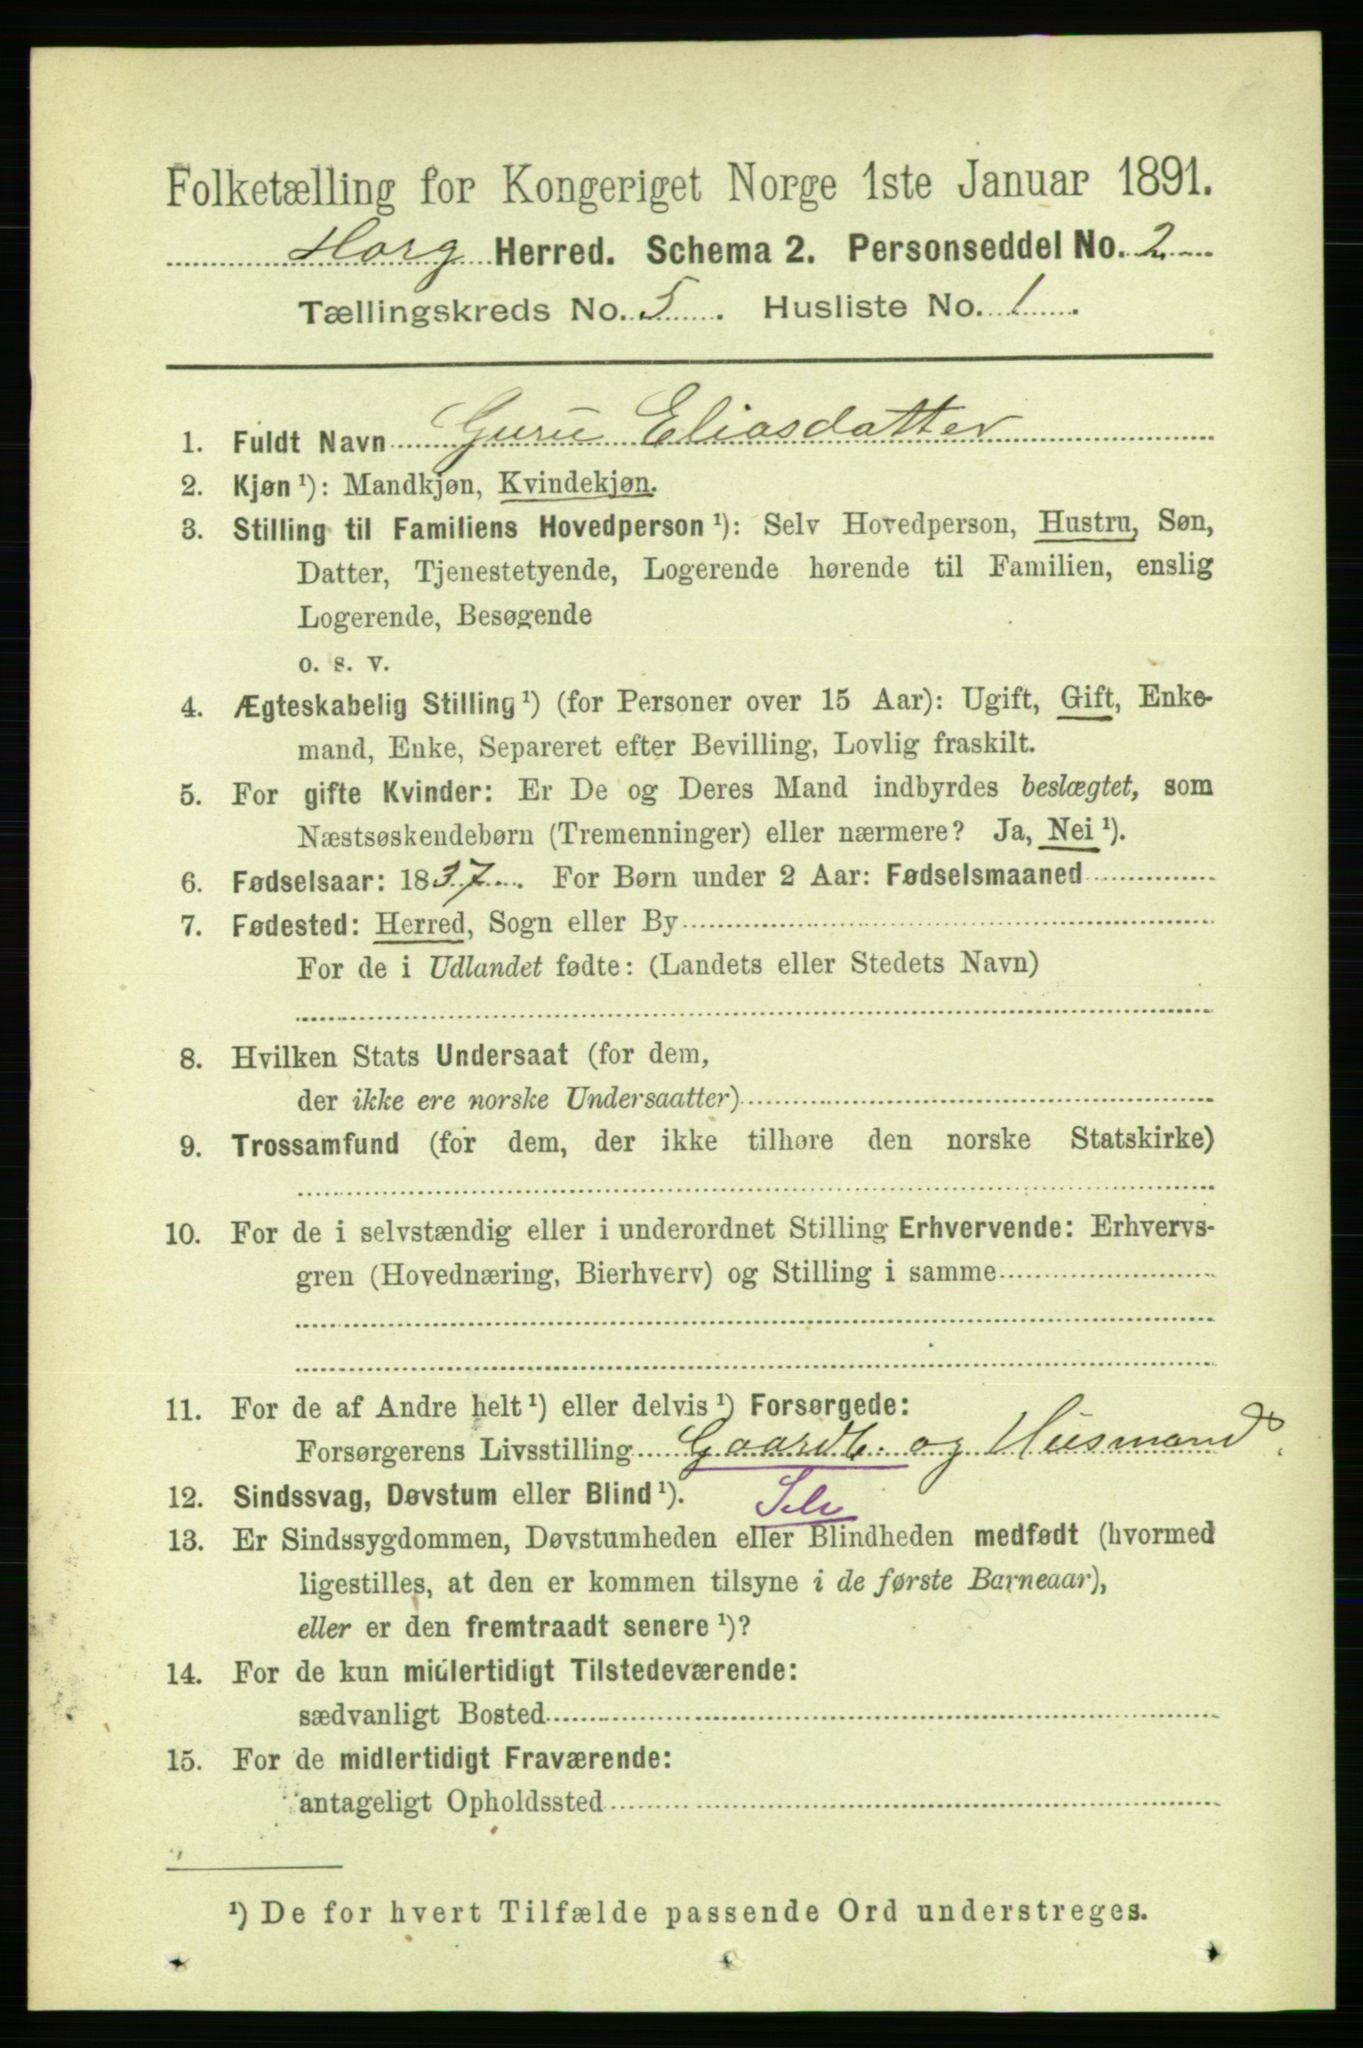 Folketælling for Kongeriget Norge 1ste Januar 1891.
Horg Herred. Schema 2. Personseddel No. 2
Tællingskreds No. 5. Husliste No. 1.
1. Fuldt Navn Guru Eliasdatter
2. Kjøn ¹): Mandkjøn, Kvindekjøn.
3. Stilling til Familiens Hovedperson ¹): Selv Hovedperson, Hustru, Søn,
Datter, Tjenestetyende, Logerende hørende til Familien, enslig
Logerende, Besøgende
o. s. v.
4. Ægteskabelig Stilling ¹) (for Personer over 15 Aar): Ugift, Gift, Enke-
mand, Enke, Separeret efter Bevilling, Lovlig fraskilt.
5. For gifte Kvinder: Er De og Deres Mand indbyrdes beslægtet, som
Næstsøskendebørn (Tremenninger) eller nærmere? Ja, Nei ¹).
6. Fødselsaar: 1837. For Børn under 2 Aar: Fødselsmaaned
7. Fødested: Herred, Sogn eller By
For de i Udlandet fødte: (Landets eller Stedets Navn)
8. Hvilken Stats Undersaat (for dem,
der ikke ere norske Undersaatter)
9. Trossamfund (for dem, der ikke tilhøre den norske Statskirke)
10. For de i selvstændig eller i underordnet Stilling Erhvervende: Erhvervs-
gren (Hovednæring, Bierhverv) og Stilling i samme
11. For de af Andre helt ¹) eller delvis ¹) Forsørgede:
Forsørgerens Livsstilling Gaardb. og Husmand
12. Sindssvag, Døvstum eller Blind ¹). Selv
13. Er Sindssygdommen, Døvstumheden eller Blindheden medfødt (hvormed
ligestilles, at den er kommen tilsyne i de første Barneaar),
eller er den fremtraadt senere ¹)?
14. For de kun midlertidigt Tilstedeværende:
sædvanligt Bosted
15. For de midlertidigt Fraværende:
antageligt Opholdssted
¹) De for hvert Tilfælde passende Ord understreges.